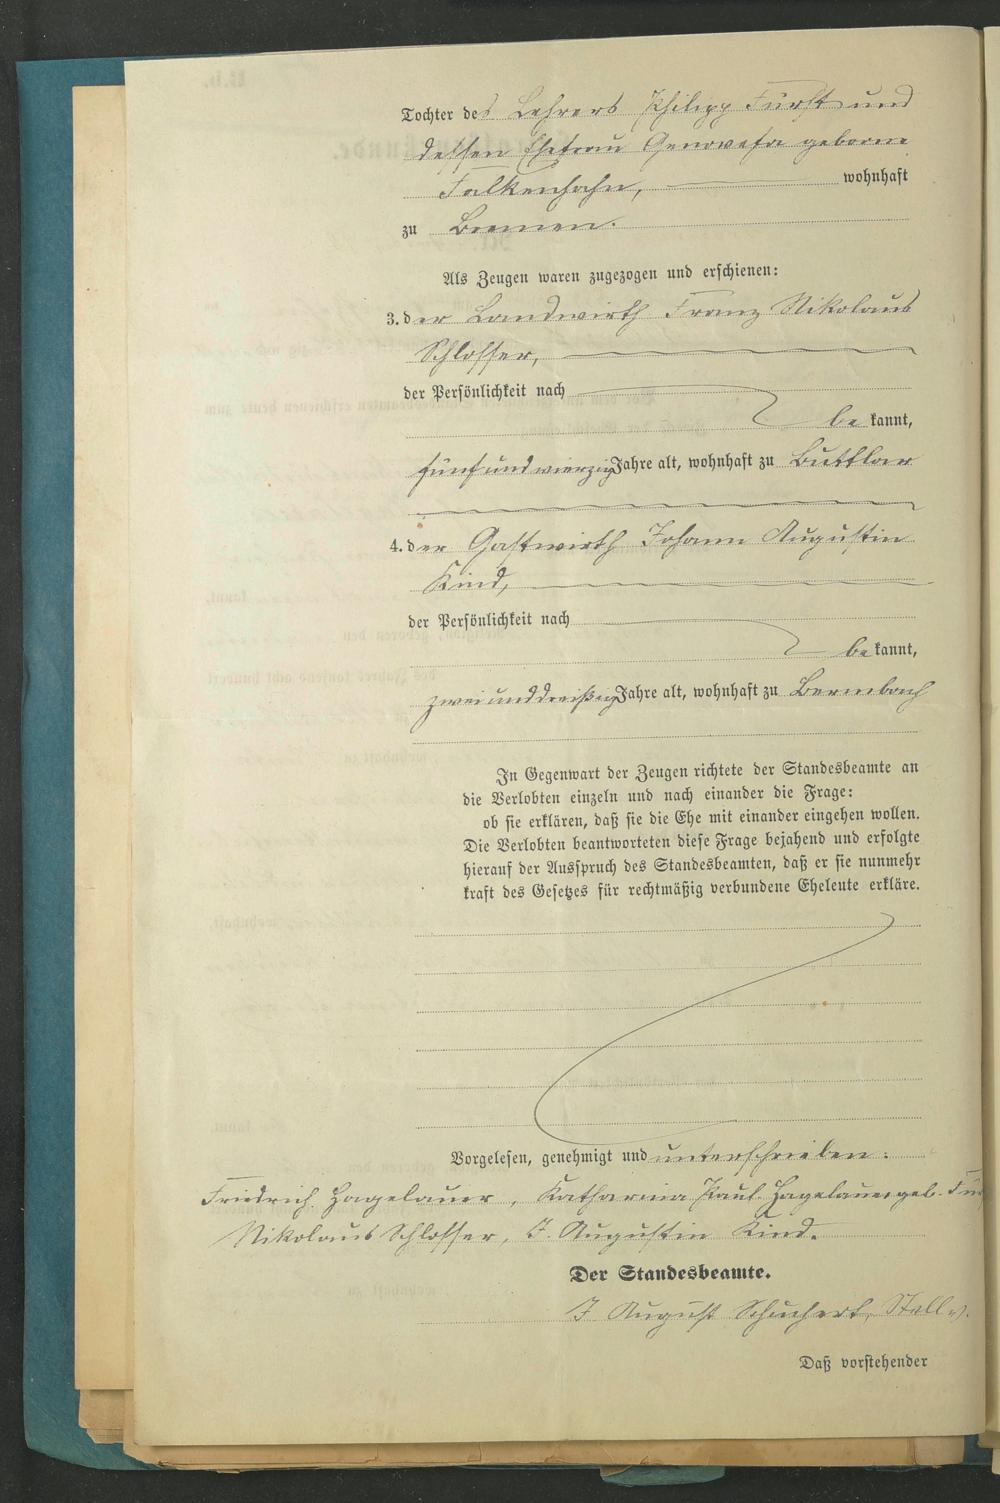 Tochter des Lehrers Philipp Fürst und
dessen Ehefrau Genovefa geborne
Falkenhahn, wohnhaft
zu Bremen.
Als Zeugen waren zugezogen und erschienen:
3. der Landwirth Franz Nikolaus
Schlosser,
der Persönlichkeit nach
be kannt,
fünf und vierzig Jahre alt, wohnhaft zu Buttlar
4. der Gastwirth Johann Augustin
Kind,
der Persönlichkeit nach
be kannt,
zwei und dreißig Jahre alt, wohnhaft zu Bermbach
In Gegenwart der Zeugen richtete der Standesbeamte an
die Verlobten einzeln und nach einander die Frage:
ob sie erklären, daß sie die Ehe mit einander eingehen wollen.
Die Verlobten beantworteten diese Frage bejahend und erfolgte
hierauf der Ausspruch des Standesbeamten, daß er sie nunmehr
kraft des Gesetzes für rechtmäßig verbundene Eheleute erkläre.
Vorgelesen, genehmigt und unterschrieben:
Friedrich Hagelauer, Katharina Paul. Hagelauer geb. Für
Nikolaus Schlosser, J. Augustin Kind.
Der Standesbeamte.
J August Schuchert, Stellv.
Daß vorstehender